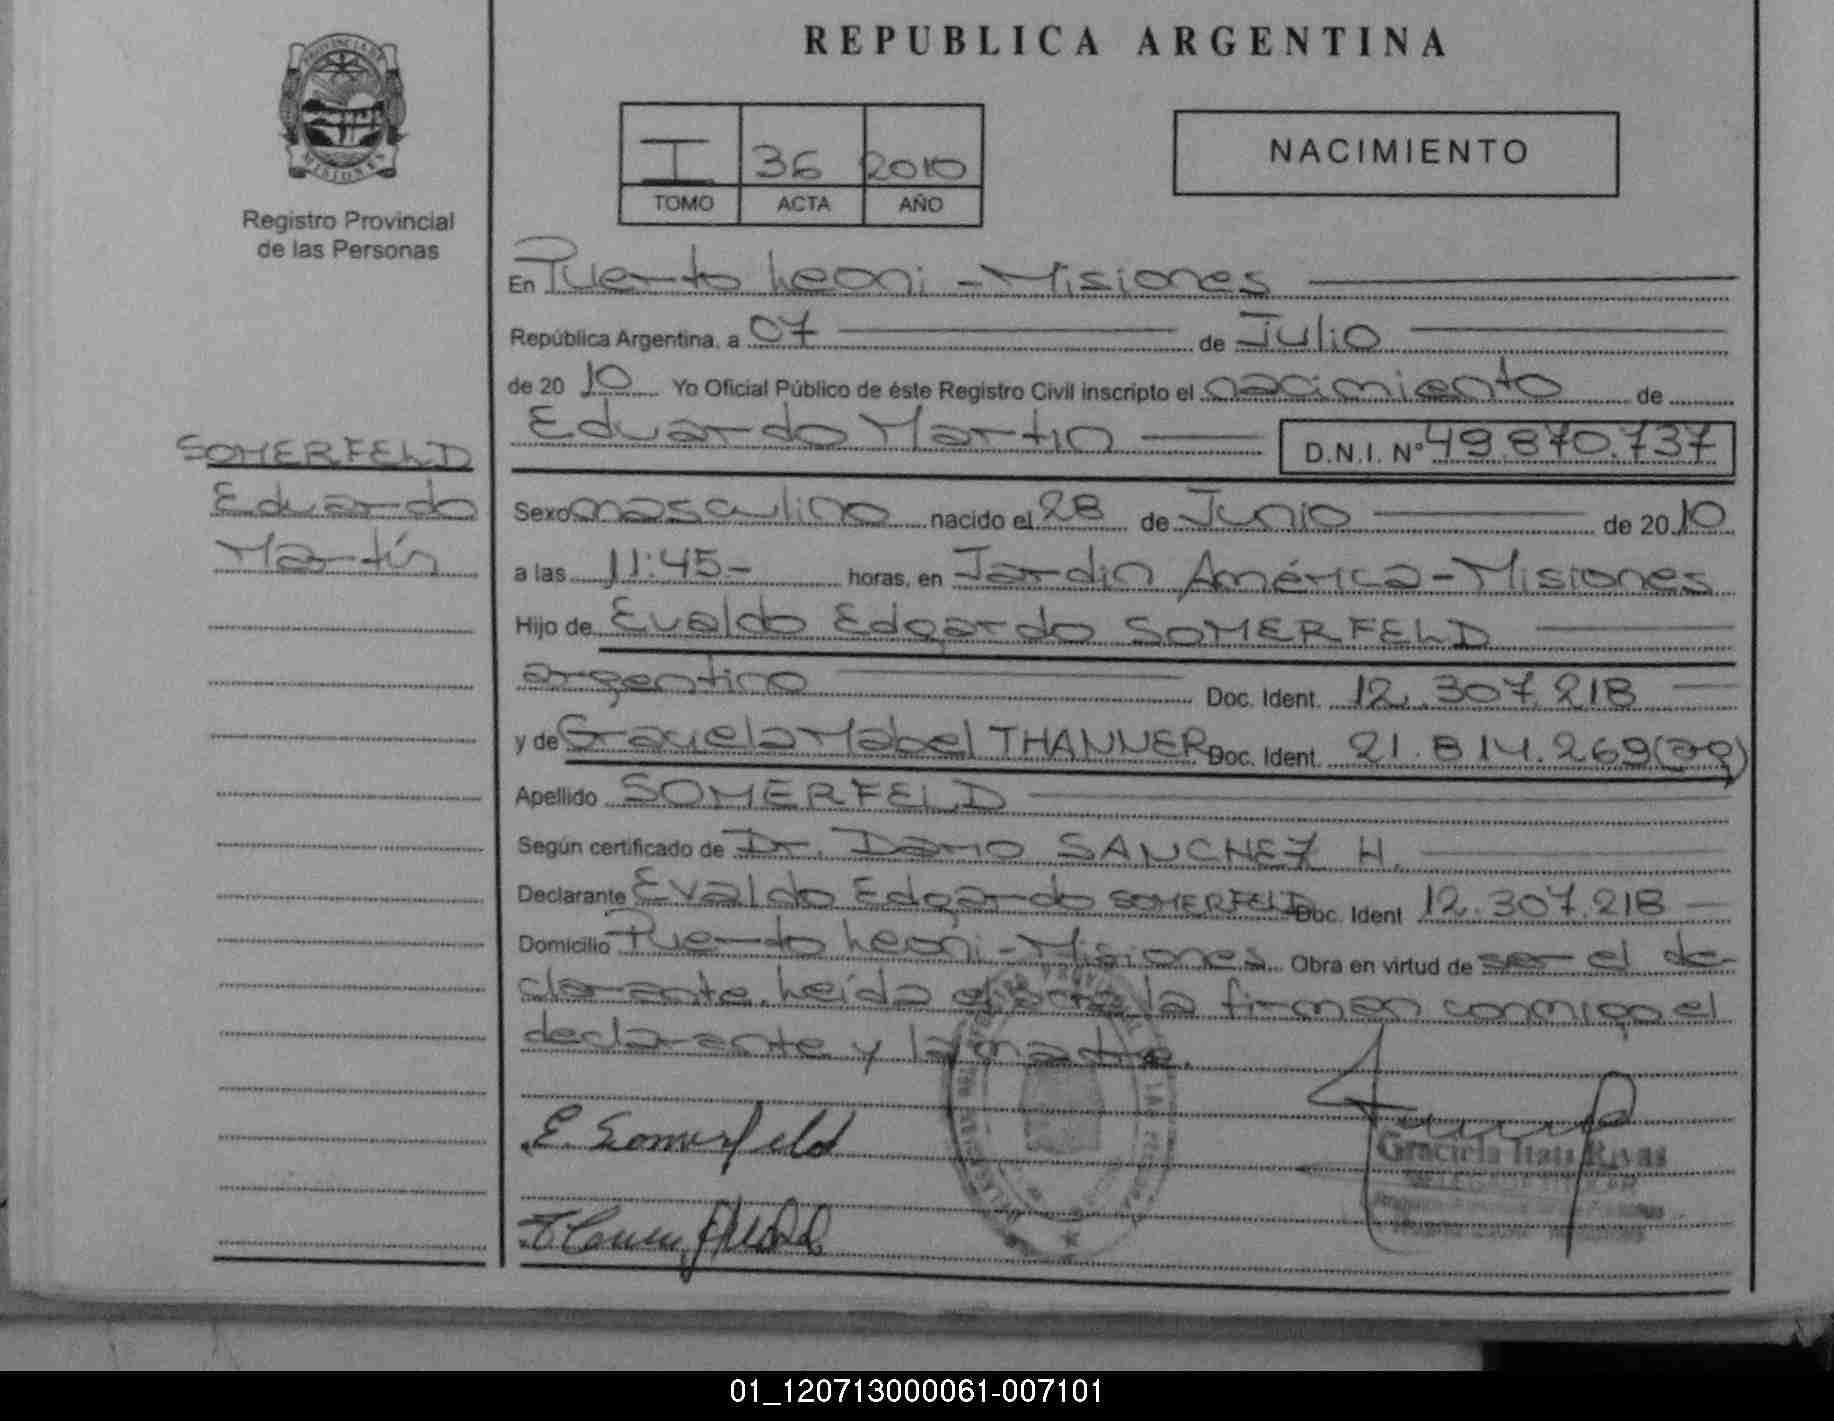 REPUBLICA ARGENTINA
PROVINCIA DE
MISIONES
Registro Provincial
de las Personas
I 36 2010
TOMO ACTA AÑO
NACIMIENTO
En Puerto Leoni - Misiones
República Argentina, a 07 de Julio
de 20 10 Yo Oficial Público de éste Registro Civil inscripto el nacimiento de
Eduardo Martin D.N.I. Nº 49.870.737
SOMERFELD
Eduardo
Martín
Sexo masculino nacido el 28 de Junio de 20 10
a las 11:45- horas, en Jardin América - Misiones
Hijo de Evaldo Edgardo SOMERFELD
argentino Doc. Ident. 12.307.218
y de Graciela Mabel THANNER Doc. Ident. 21.814.269 (arg)
Apellido SOMERFELD
Según certificado de Dr. Dario SANCHEZ H.
Declarante Evaldo Edgardo SOMERFELD Doc. Ident 12.307.218
Domicilio Puerto Leoni - Misiones Obra en virtud de ser el de-
clarante. Leída el acta la firman conmigo el
declarante y la madre.
E. Somerfeld
Graciela Itati Rivas
01_120713000061-007101